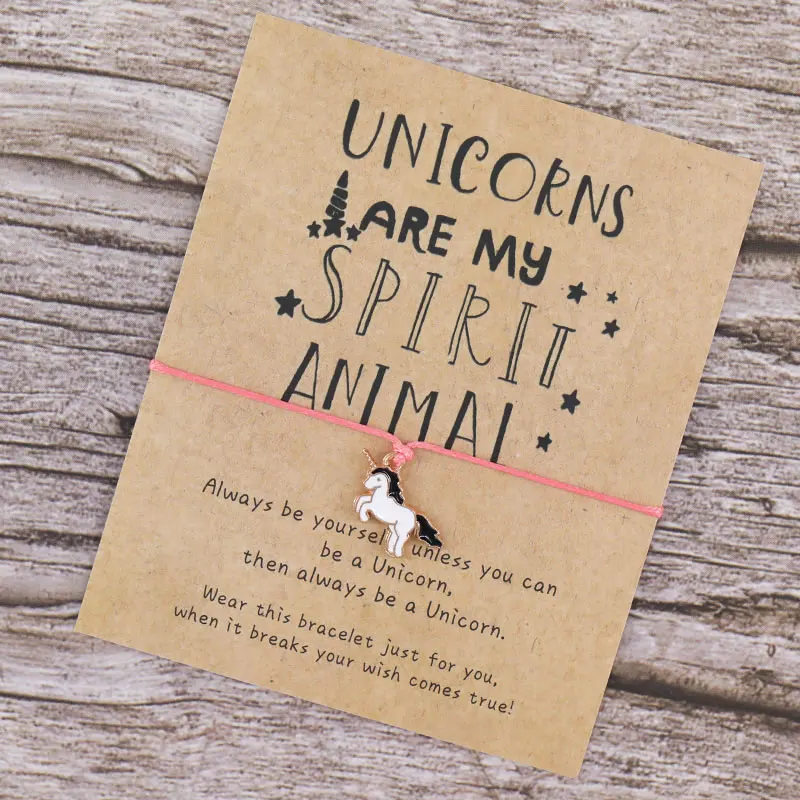 UNICORNS
ARE MY
SPIRIT
ANIMAL
Always be yourself unless you can
be a Unicorn,
then always be a Unicorn.
Wear this bracelet just for you,
when it breaks your wish comes true!